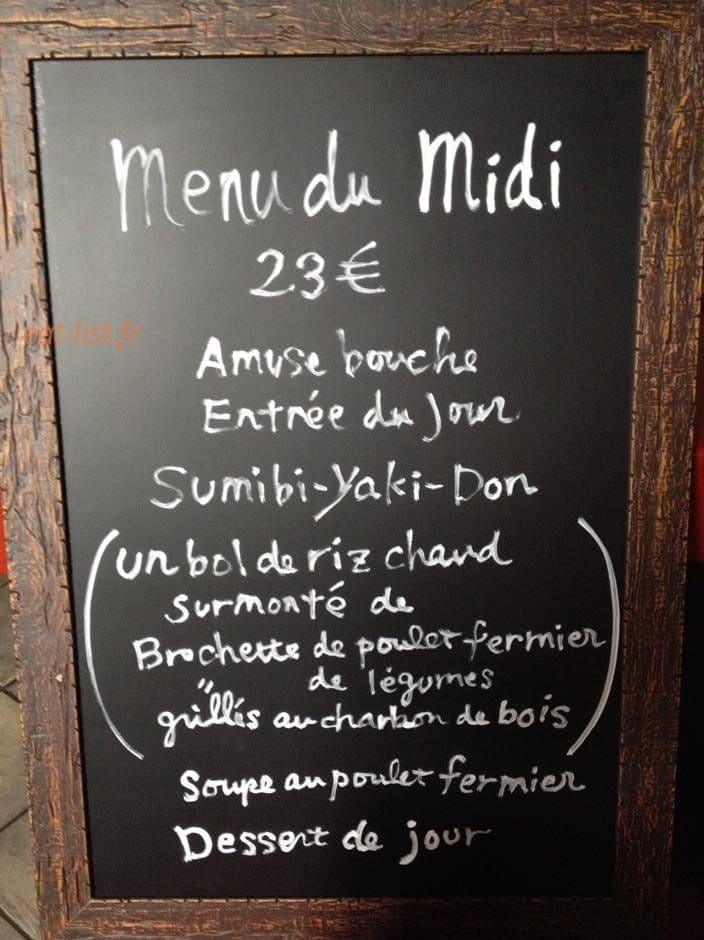 Menu du Midi
23€
eat-list.fr
Amuse bouche
Entrée du Jour
Sumibi-Yaki-Don
(un bol de riz chaud
surmonté de
Brochette de poulet fermier
" de légumes
grillés au charbon de bois)
Soupe au poulet fermier
Dessert de jour